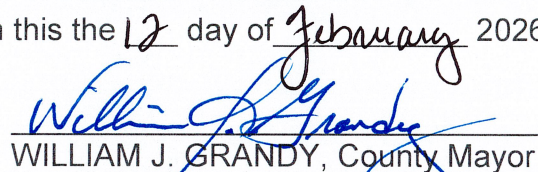 this the 12 day of February 2026
William J. Grandy
WILLIAM J. GRANDY, County Mayor